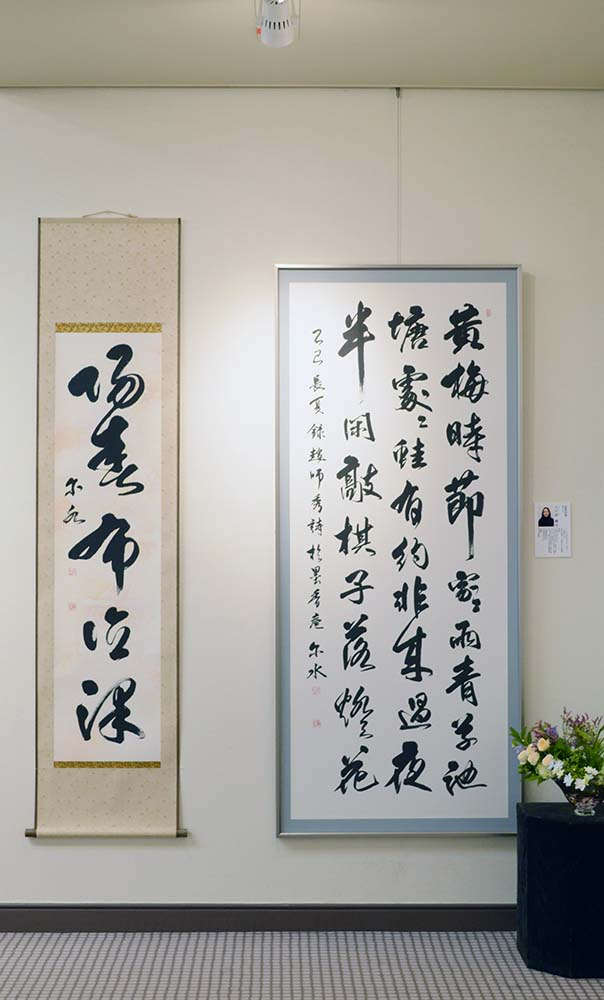 黄梅時節家〻雨青草池
塘處〻蛙有約非来過夜
半閑敲棋子落燈花
乙巳長夏録趙師秀詩於墨香庵 尔水
陽春布徳澤
尔水